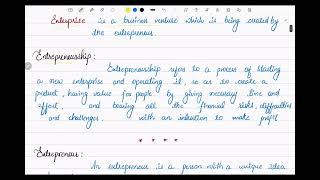 Enterprise is a business venture which is being created by -
the entrepreneur.
Entrepreneurship :
Entrepreneurship refers to a process of starting
a new enterprise and operating it, so as to create a
product, having value for people by giving necessary time and
effort, and bearing all the financial risks, difficulties
and challenges, with an intention to make profit
* * * *
Entrepreneur :
An entrepreneur is a person with a unique idea